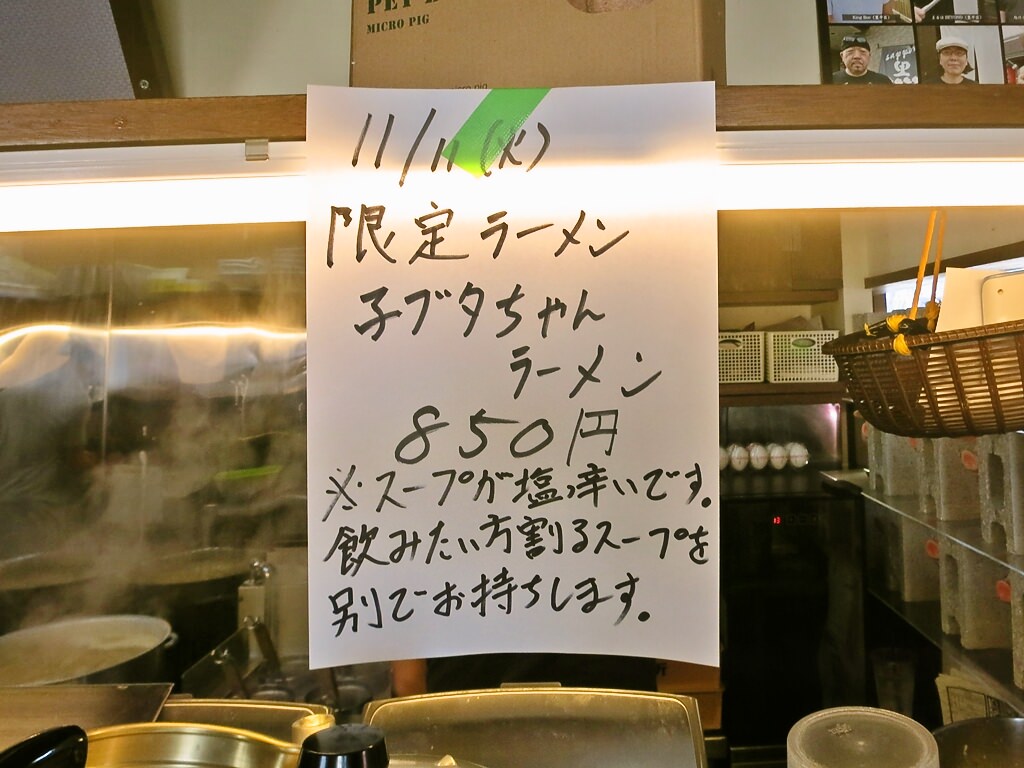 MICRO PIG
11/11(火)
限定ラーメン
子ブタちゃん
ラーメン
850円
※スープが塩っ辛いです。
飲みたい方割るスープを
別でお持ちします。